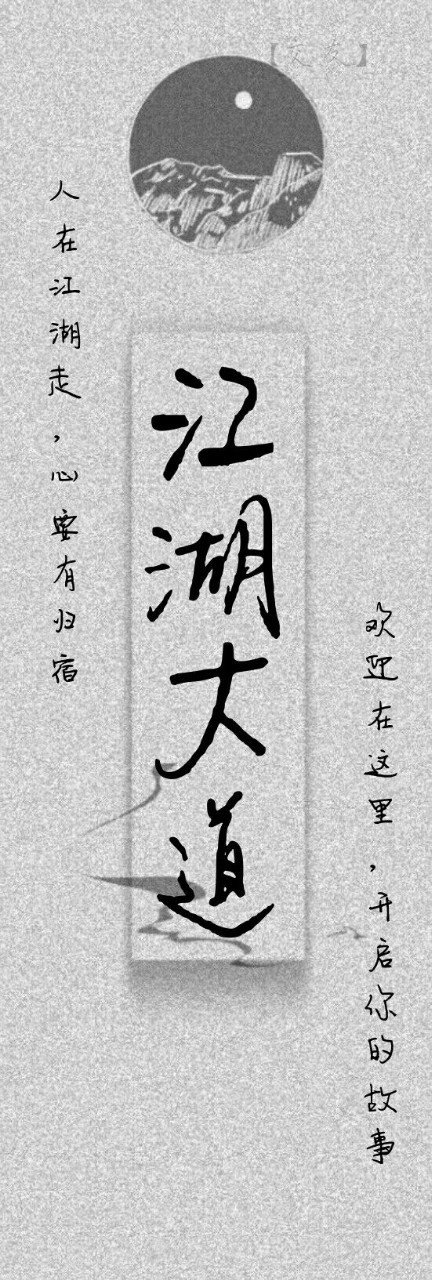 【交友】
人在江湖走，心要有归宿
江湖大道
欢迎在这里，开启你的故事